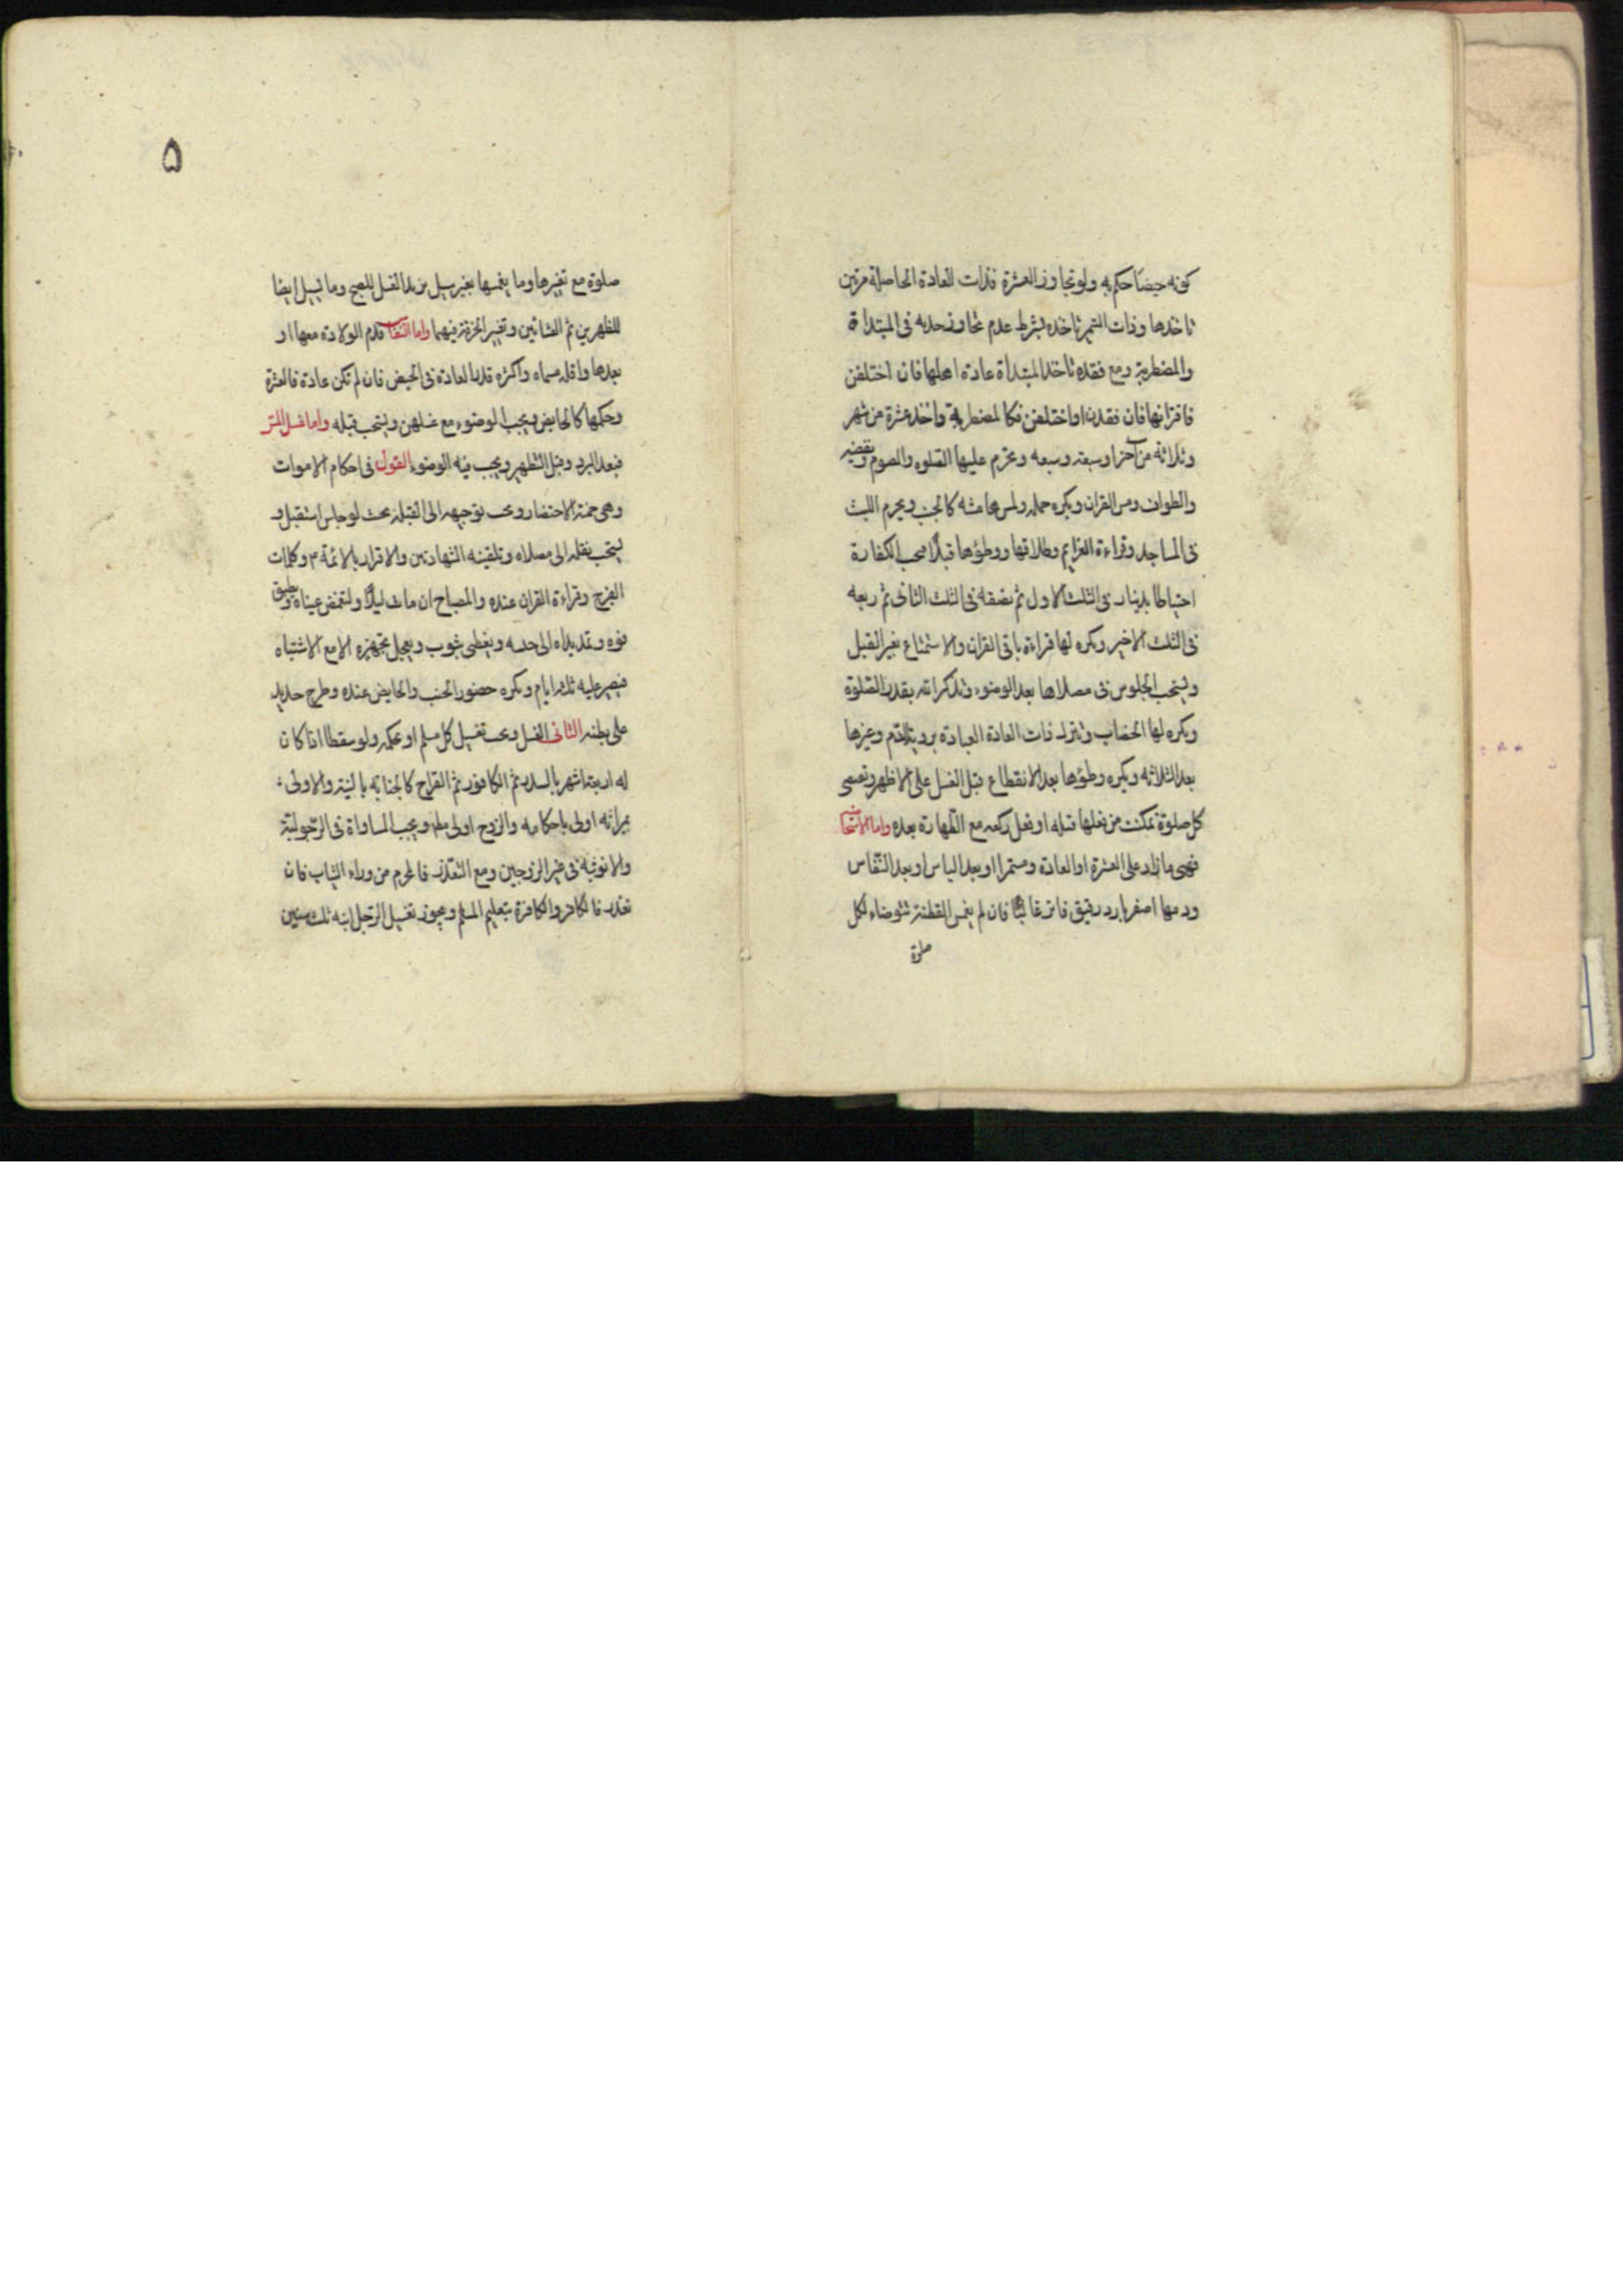 كونه حيضا حكم به ولو تجاوز العشرة فذات العادة الحاصلة مرتين
تاخذها وذات التميز تاخذه بشرط عدم تجاوز حديه فى المبتداة
والمضطربة ومع فقده تاخذ المبتداة عادة اهلها فان اختلفن
فاقرانها فان فقدن او اختلفن فكالمضطربة واخذ عشرة من شهر
وثلاثة من اخر او سبعة وسبعه وتحرم عليها الصلوه والصوم وتقضيه
والطواف ومس القران ويكره حمله ولمس هامشه كالجنب ويحرم اللبث
فى المساجد وقراءة العزايم وطلاقها ووطؤها قبلا فيجب الكفارة
احتياطا بدينار فى الثلث الاول ثم نصفه فى الثلث الثانى ثم ربعه
فى الثلث الاخير ويكره لها قراءة باقى القران والاستمتاع بغير القبل
ويستحب الجلوس فى مصلاها بعد الوضوء وتذكر الله بقدر الصلوة
ويكره لها الخضاب وتترك ذات العادة العبادة بروية الدم وغيرها
بعد الثلاثه ويكره وطؤها بعد الانقطاع قبل الغسل على الاظهر وتقضى
كل صلوة تمكنت من فعلها قبله او فعل ركعه مع الطهارة بعده واما الاستحاضة
فهى ما زاد على العشرة او العادة مستمرا او بعد الياس او بعد النفاس
ودمها اصفر بارد رقيق فاتر غالبا فان لم يغمس القطنة تتوضاء لكل
صلوة
۵
صلوة مع تغيرها وما يغمسها بغير سيل يزيد الغسل للصبح وما تسيل ايضا
للظهرين ثم العشائين وتغيير الخرقة فيهما واما النفاس فدم الولادة معها او
بعدها واقله مسماه واكثره قدر العادة فى الحيض فان لم تكن عادة فالعشرة
وحكمها كالحايض ويجب الوضوء مع غسلهن ويستحب قبله واما غسل المس
فبعد البرد وقبل التطهير ويجب فيه الوضوء القول فى احكام الاموات
وهى خمسة الاحتضار ويجب توجيهه الى القبلة بحيث لو جلس استقبل و
يستحب نقله الى مصلاه وتلقينه الشهادتين والاقرار بالائمة ٣ وكلمات
الفرج وقراءة القران عنده والمصباح ان مات ليلا ولتغمض عيناه ويطبق
فوه وتمد يداه الى جنبه ويغطى بثوب ويعجل تجهيزه الا مع الاشتباه
فيصبر عليه ثلثه ايام ويكره حضور الجنب والحايض عنده وطرح حديد
على بطنه الثانى الغسل ويجب تغسيل كل مسلم او بحكمه ولو سقطا اذا كان
له اربعة اشهر بالسدر ثم الكافور ثم القراح كالجنابة بالنية والاولى
بميراثه اولى باحكامه والزوج اولى مطلقا ويجب المساواة فى الرجولية
والانوثيه فى غير الزوجين ومع التعذر فالمحرم من وراء الثياب فان
تعذر فالكافر والكافرة بتعليم المسلم ويجوز تغسيل الرجل ابنه ثلث سنين